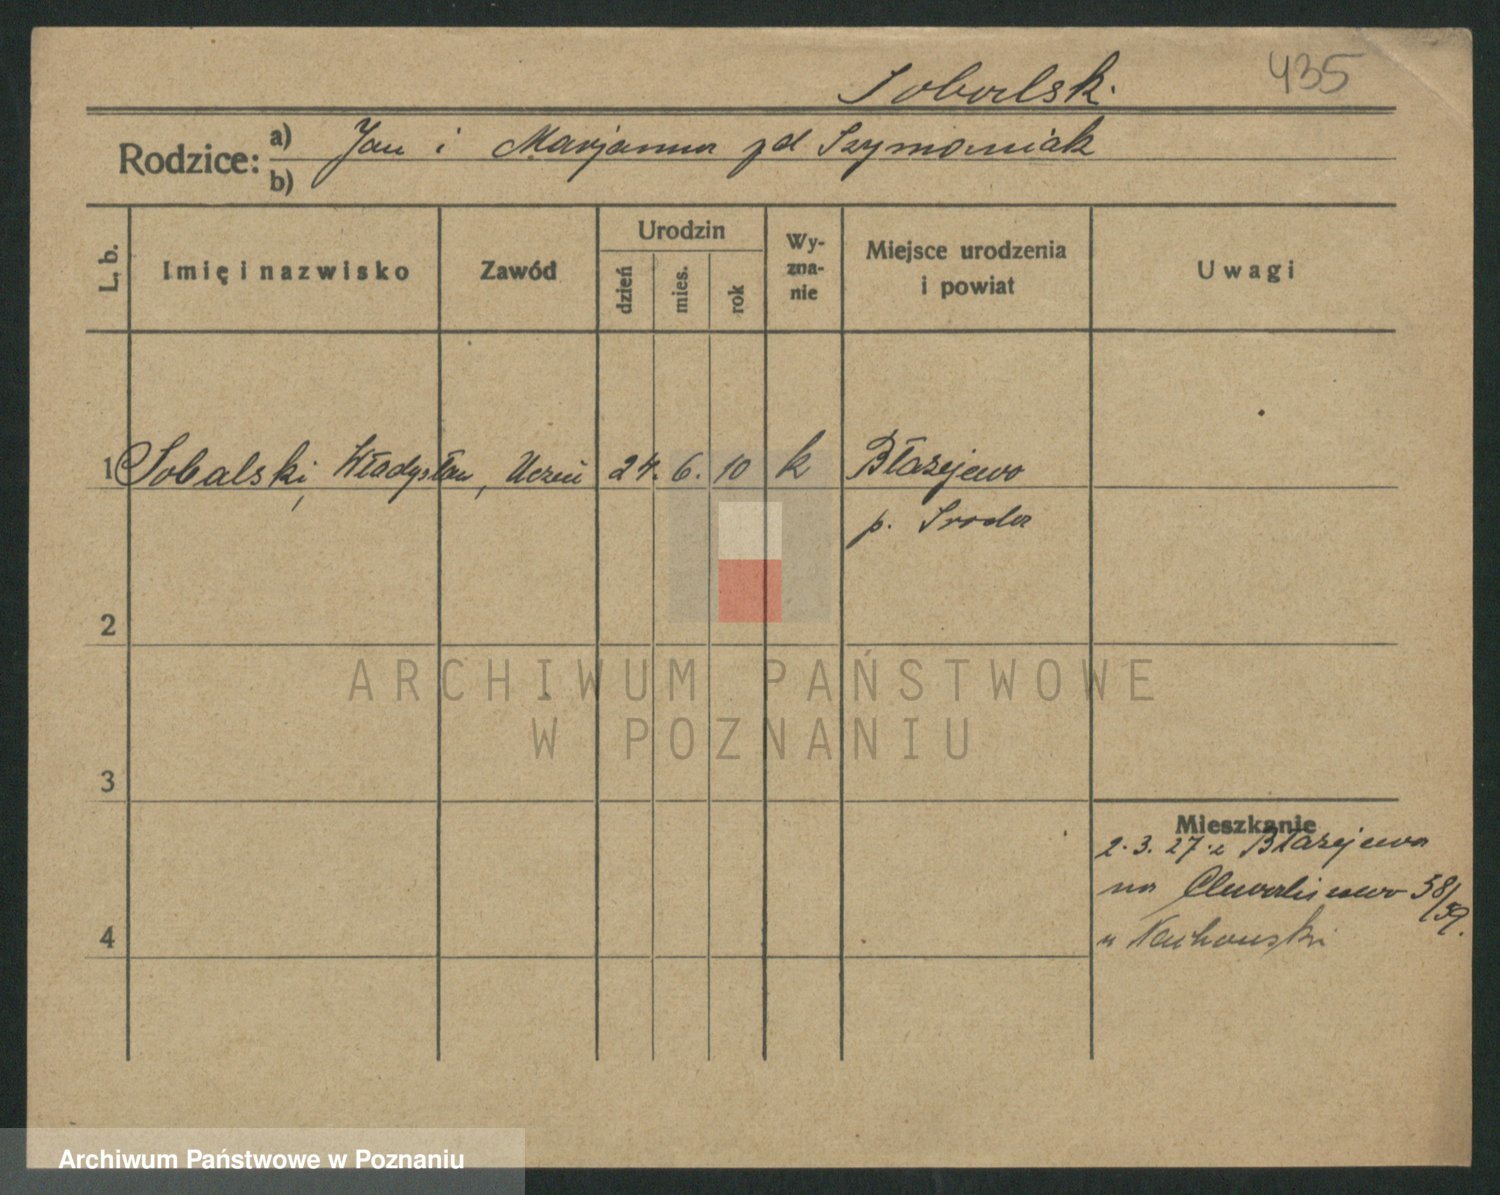 435
Sobalsk.
Rodzice: a) Jan i Marjanna zd Szymaniak
b)
L. b.
Imię i nazwisko
Zawód
Urodzin
dzień
mies.
rok
Wy-
zna-
nie
Miejsce urodzenia
i powiat
Uwagi
1 Sobalski, Władysław, Uczeń 24. 6. 10 k Błażejewo
p. Sroda
2
3
4
Mieszkanie
2.3.27 z Błażejewa
na Chwaliszewo 58/59.
u
ARCHIWUM PAŃSTWOWE
W POZNANIU
Archiwum Państwowe w Poznaniu